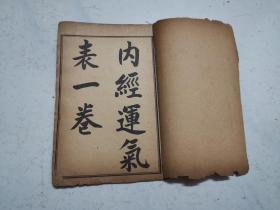 內經運氣
表一卷